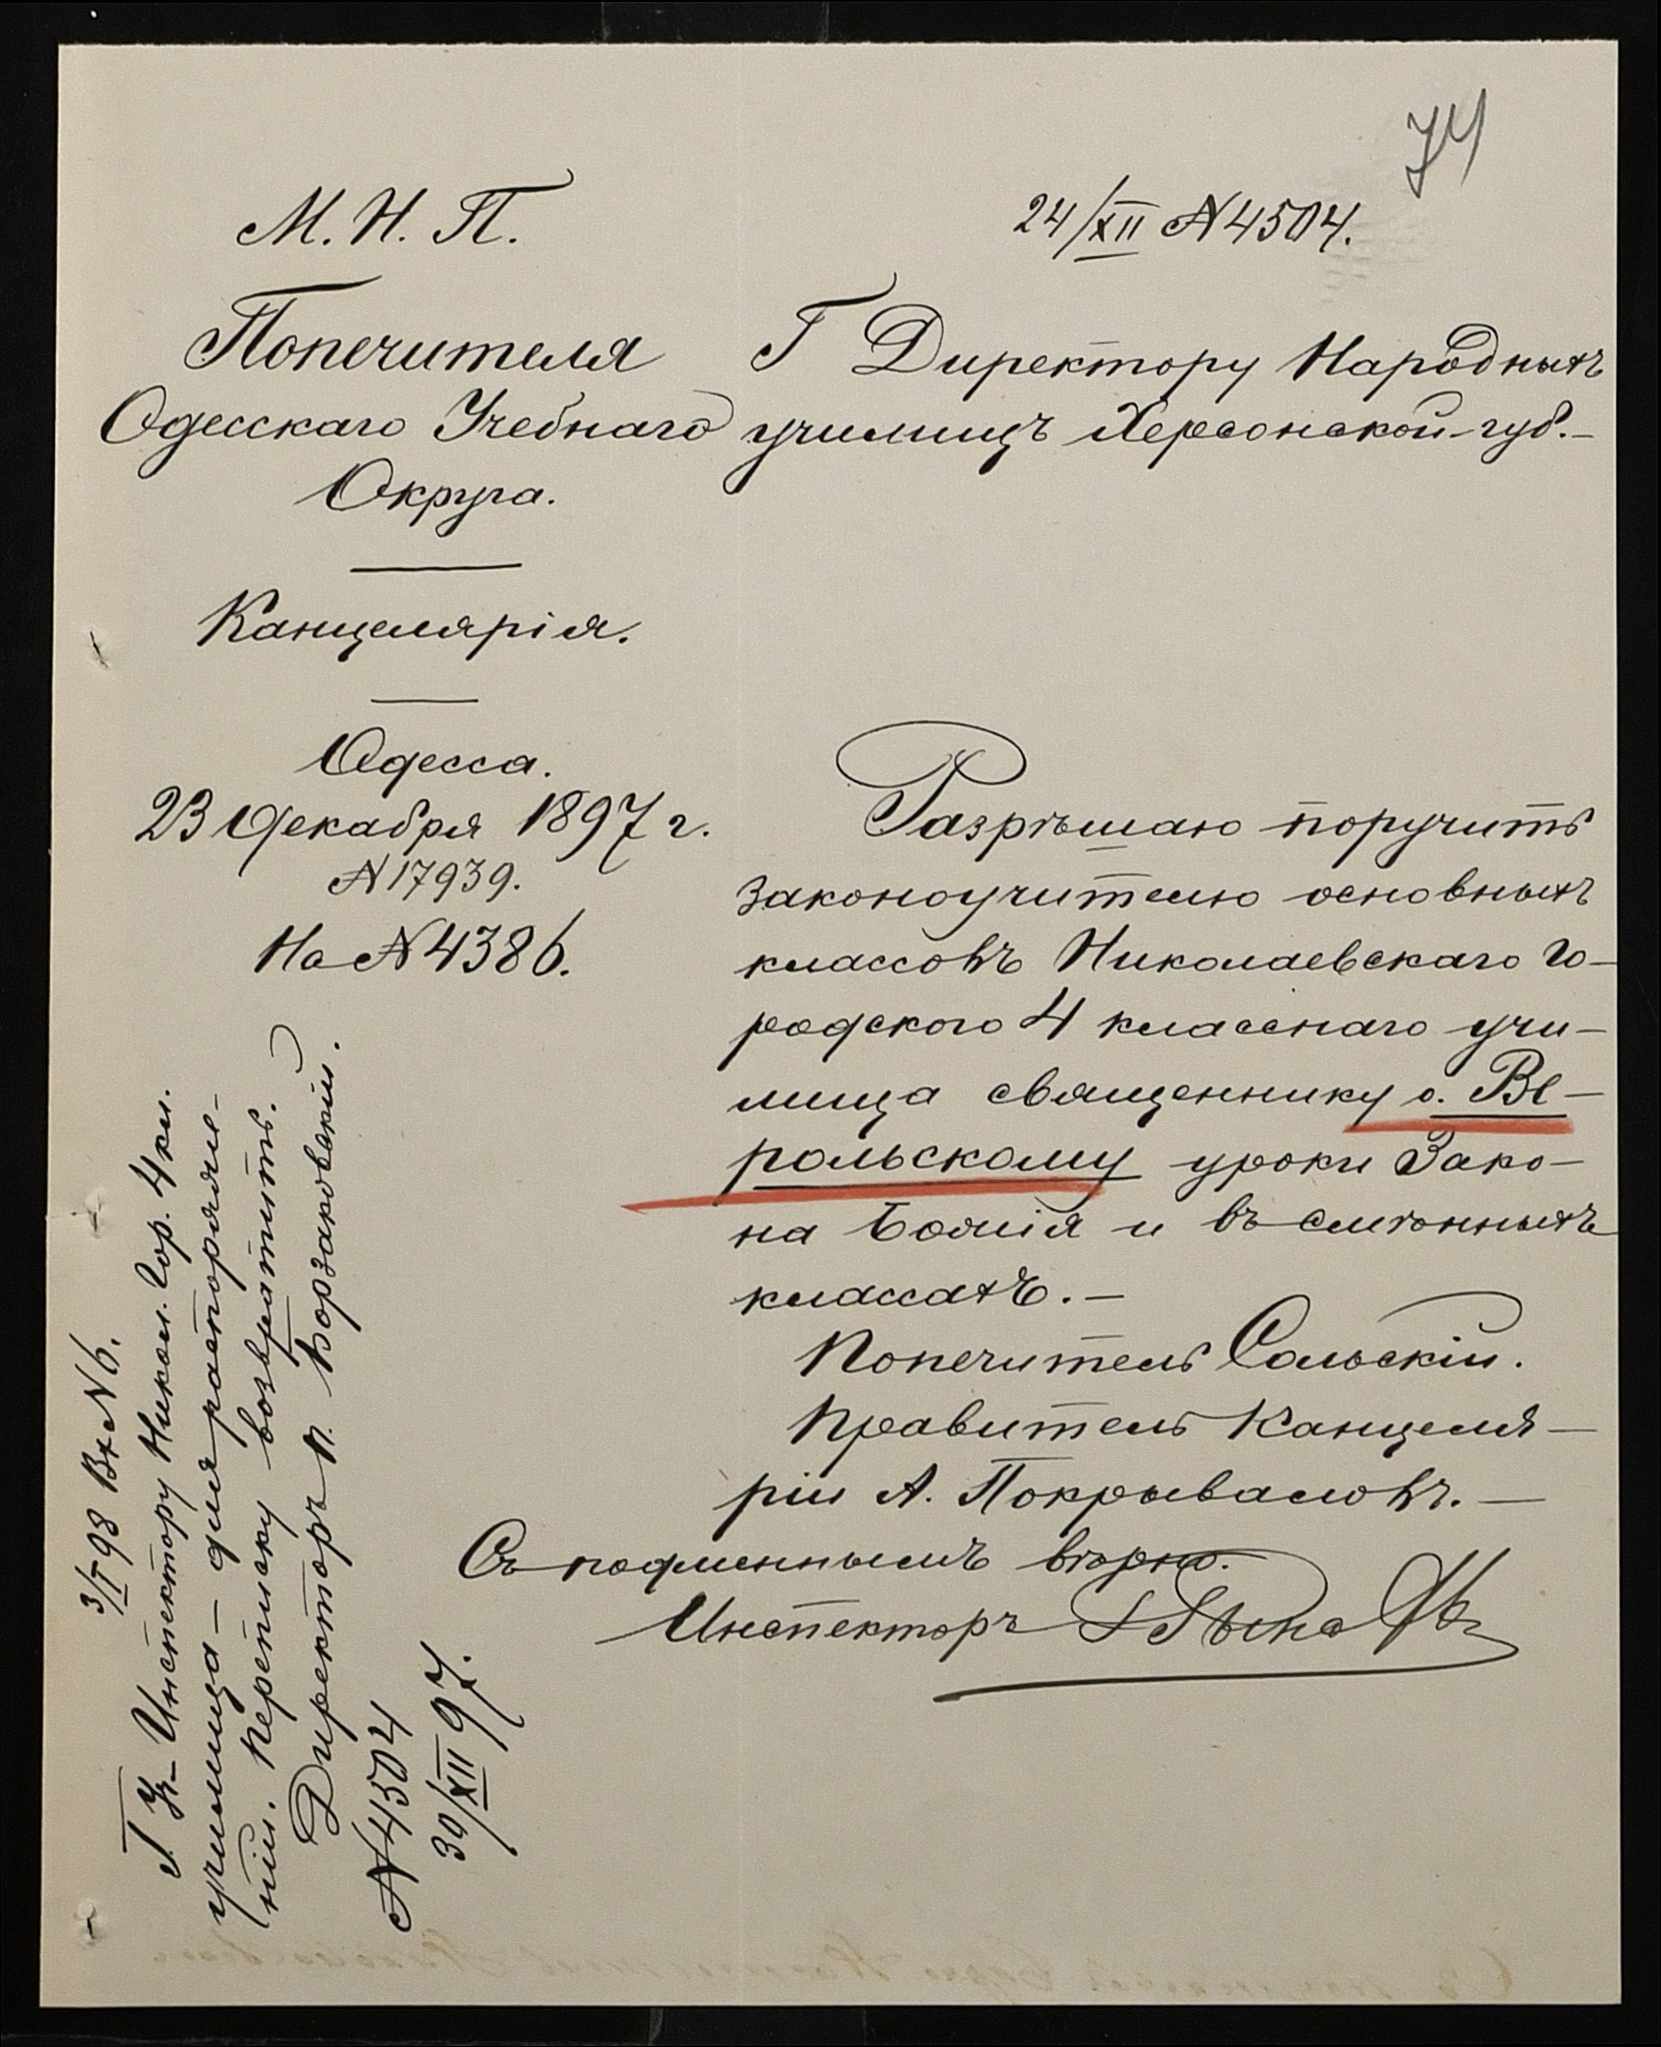 74
М. Н. П.
Попечителя
Одесскаго Учебнаго
Округа.
Канцелярія.
Одесса.
23 Декабря 1897 г.
№ 17939.
На № 4386.
24/XII № 4504.
Г Директору Народныхъ
училищъ Херсонской губ.–
Разрѣшаю поручить
законоучителю основныхъ
классовъ Николаевскаго Го–
родского 4 класснаго учи–
лища священнику о. Ве–
рольскому уроки Зако–
на Божія и въ смѣжныхъ
классахъ.–
Попечитель Сольскій.
Правитель Канцеля–
ріи А. Покрываловъ.–
Съ подлиннымъ вѣрно.
Инспекторъ
3/I 98 Вх № 6.
Г. Уч– Инспектору Никол. Гор. 4 кл.
училища – для распоряже–
нія. Переписку возвратить.
Директоръ п. Борзаковскій.
№ 4504
30/XII 97.